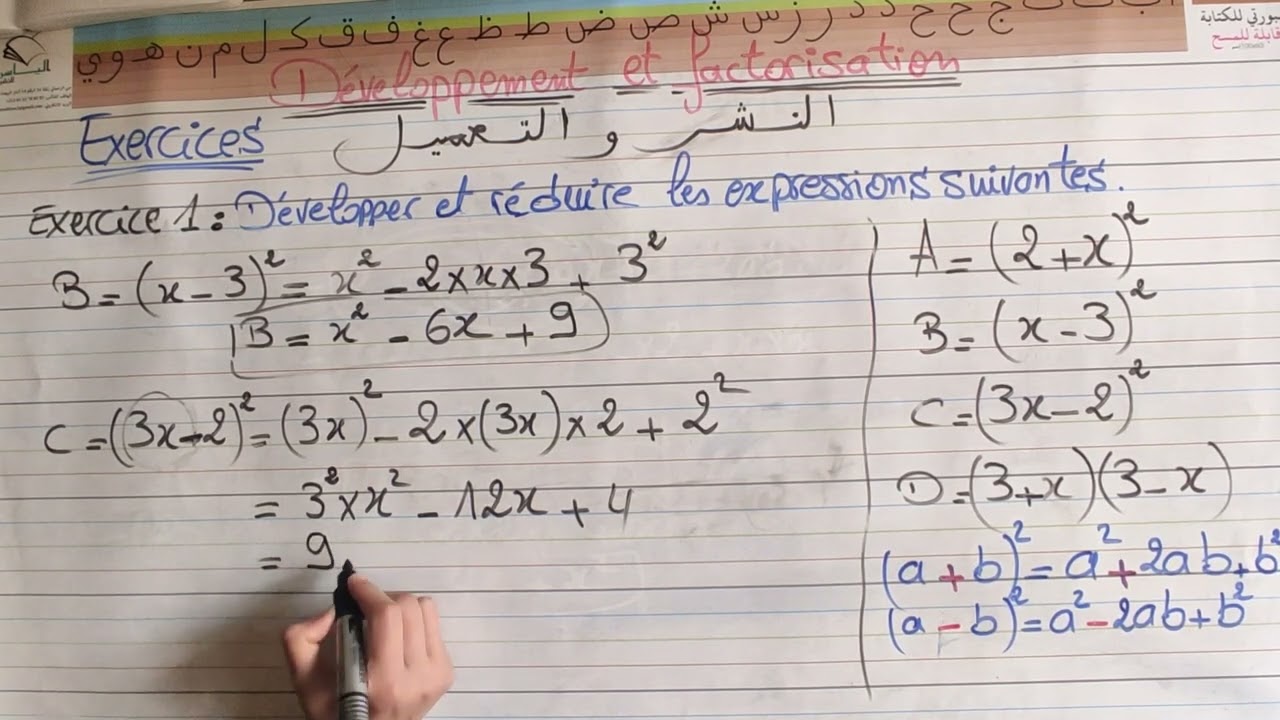 سبورتي للكتابة
قابلة للمسح
ج ح خ د ذ ر ز س ش ص ض ط ظ ع غ ف ق ك ل م ن ه و ي
Développement et factorisation
النشر و التعميل
Exercices
Exercice 1 : Développer et réduire les expressions suivantes.
B = (x - 3)² = x² - 2×x×3 + 3²
B = x² - 6x + 9
C = (3x-2)² = (3x)² - 2×(3x)×2 + 2²
= 3²×x² - 12x + 4
= 9
A = (2+x)²
B = (x-3)²
C = (3x-2)²
D = (3+x)(3-x)
(a+b)² = a² + 2ab + b²
(a-b)² = a² - 2ab + b²